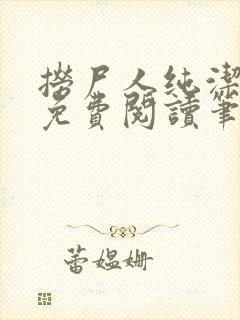 撈尸人純潔
免費閱讀筆
蕾媼姍